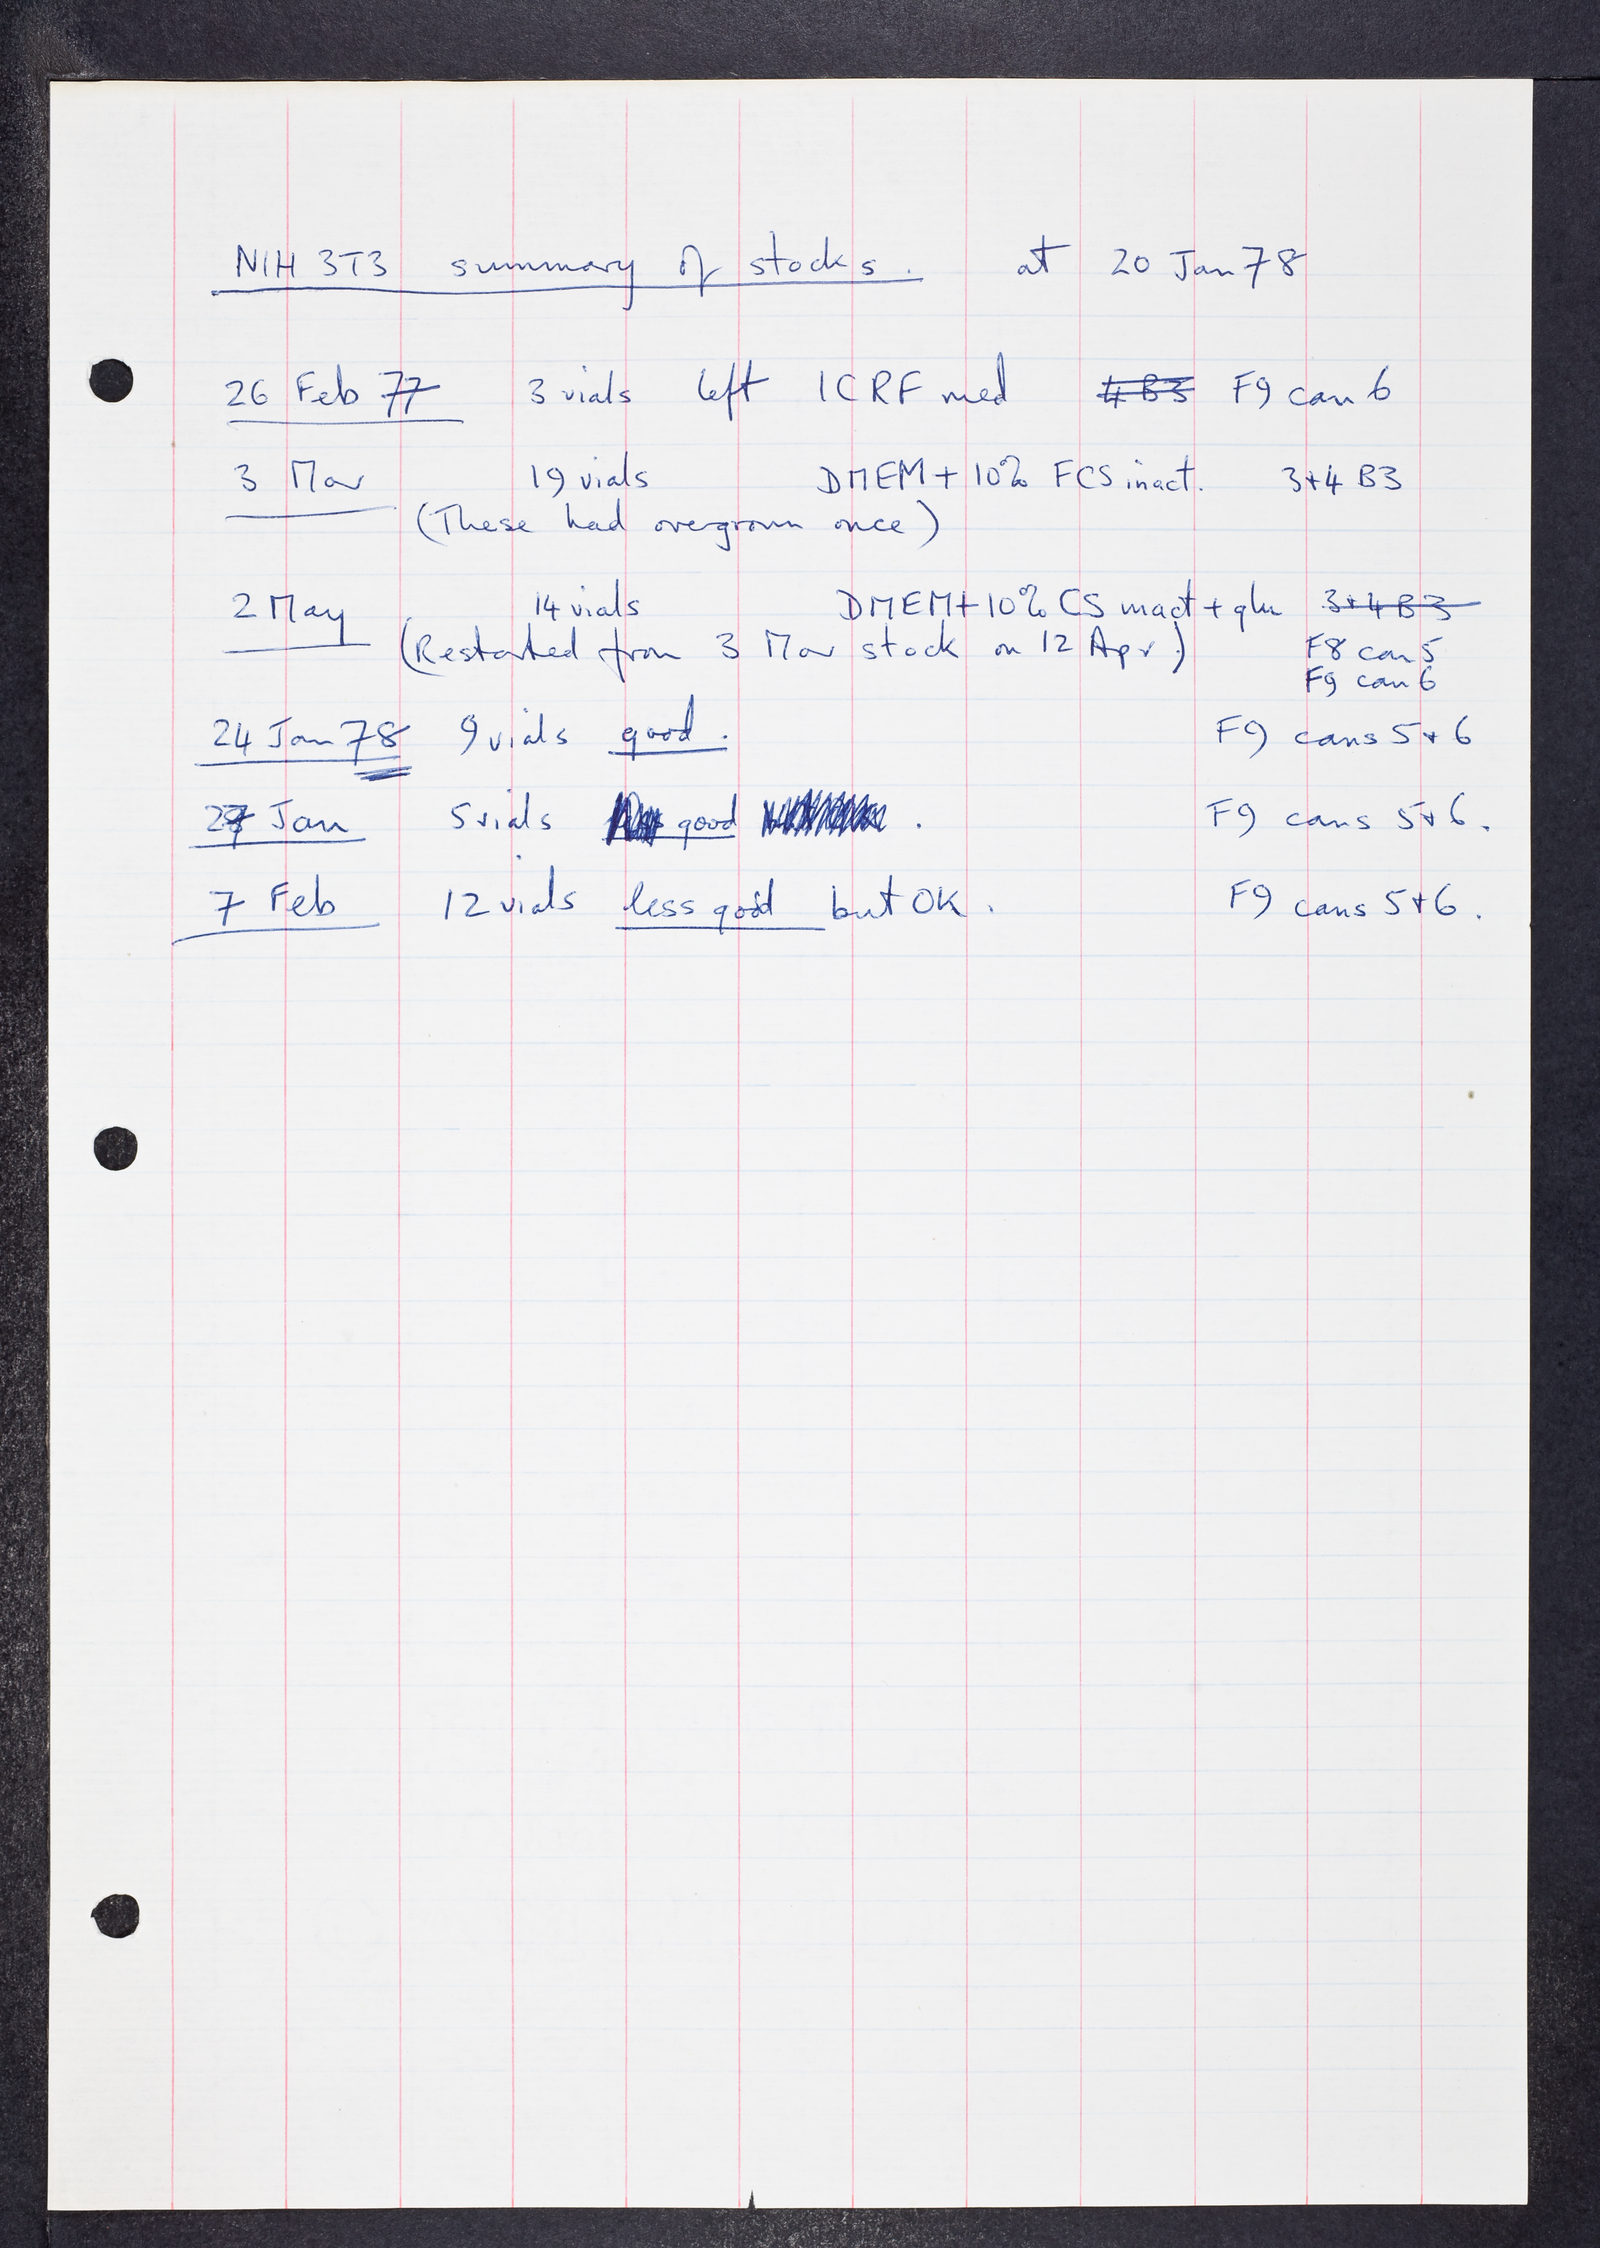 NIH 3T3 summary of stocks. at 20 Jan 78
26 Feb 77 3 vials left ICRF med 4 B3 F9 can 6
3 Mar 19 vials DMEM + 10% FCS inact. 3+4 B3
(These had overgrown once)
2 May 14 vials DMEM + 10% CS inact + glu 3+4 B3
(Restarted from 3 Mar stock on 12 Apr.) F8 can 5
F9 can 6
24 Jan 78 9 vials good. F9 cans 5+6
Jan 5 vials good . F9 cans 5+6.
7 Feb 12 vials less good but OK. F9 cans 5+6.